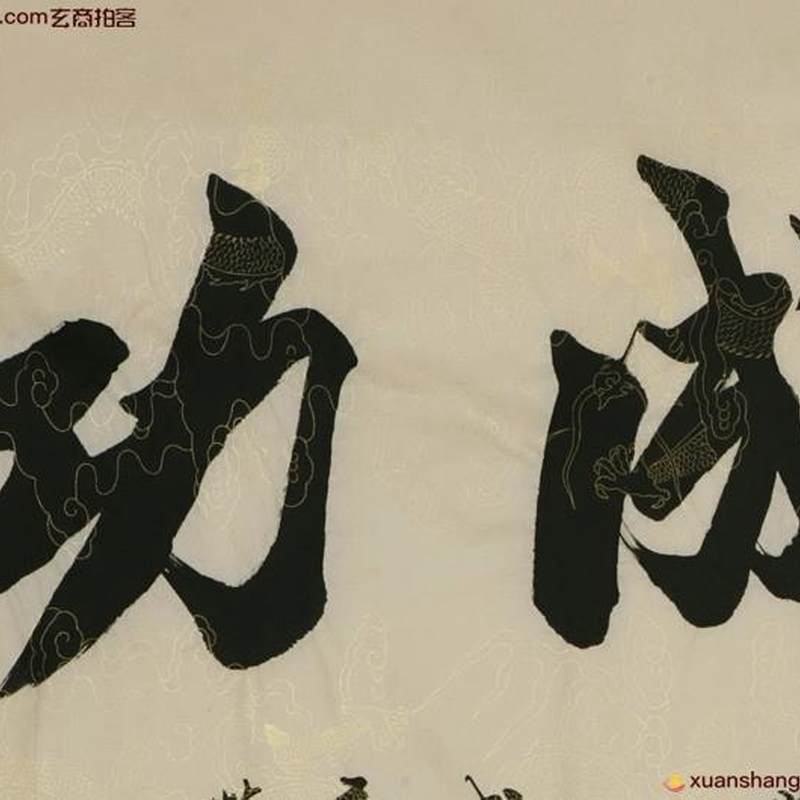 .com玄商拍客
成功
xuanshang